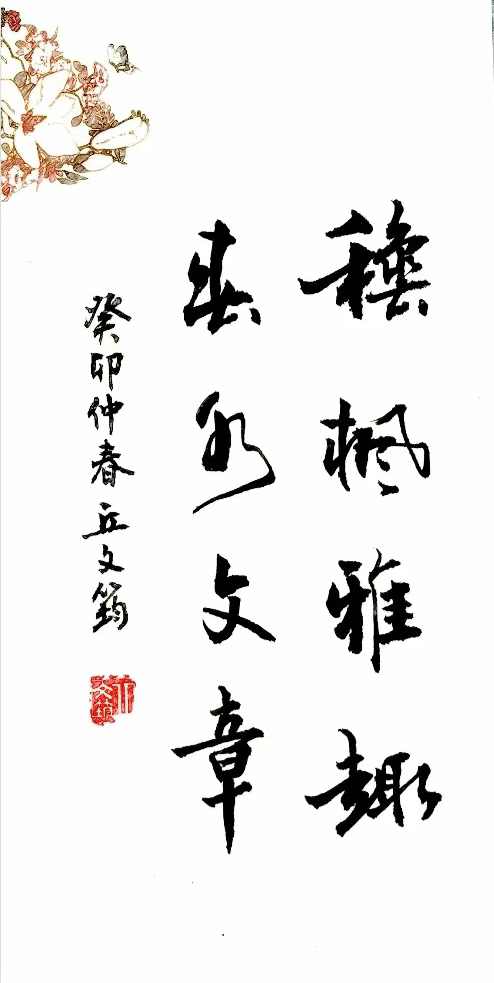 穐楓雅趣
春水文章
癸卯仲春 丘文筠